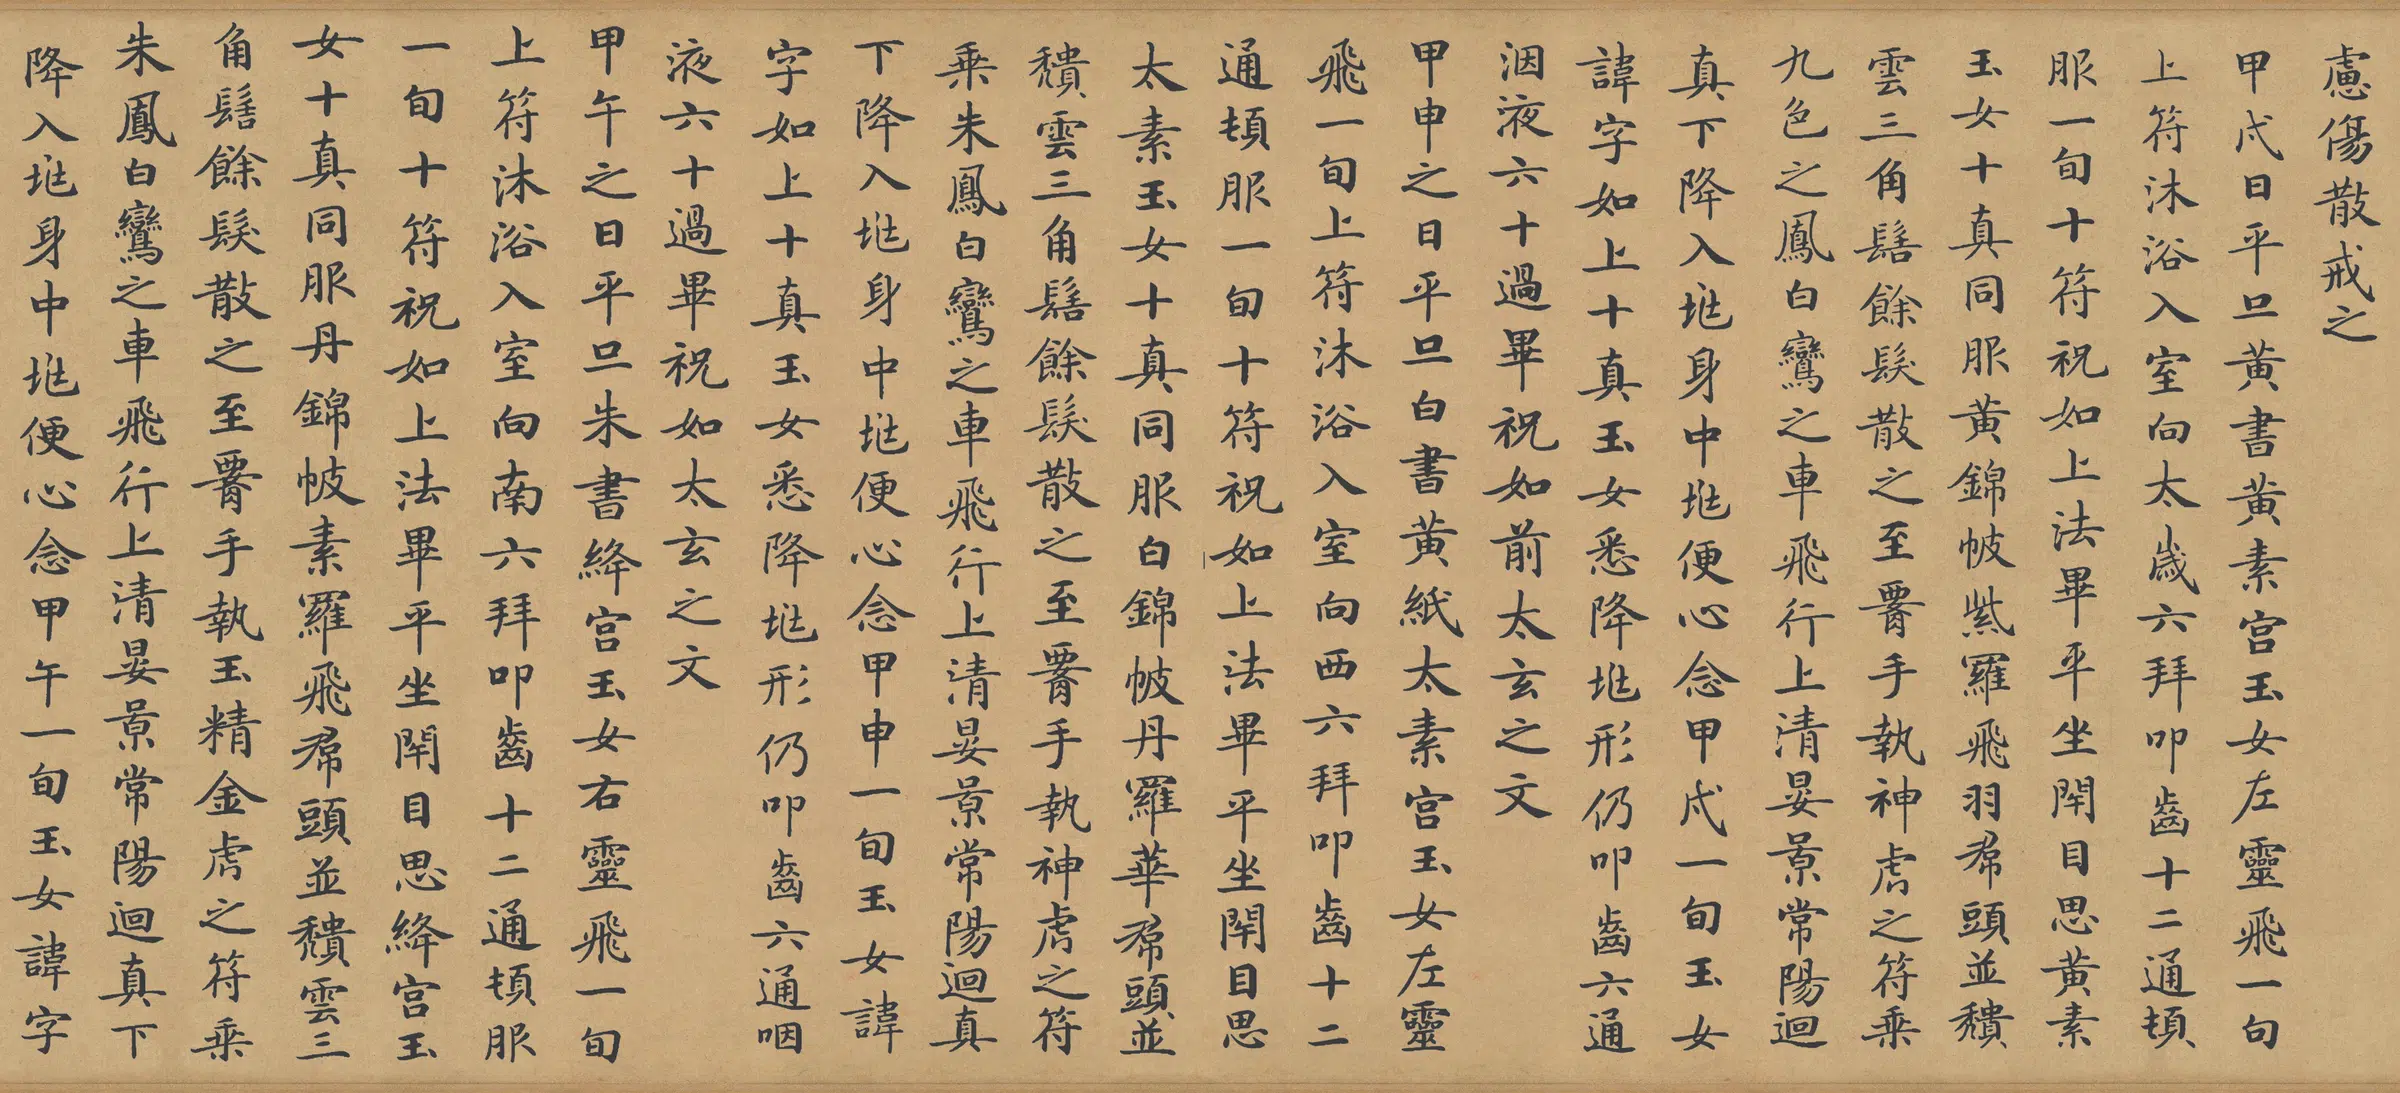 慮傷散戒之
甲戌日平旦黃書黃素宮玉女左靈飛一旬
上符沐浴入室向太歲六拜叩齒十二通頓
服一旬十符祝如上法畢平坐閉目思黃素
玉女十真同服黃錦帔紫羅飛羽帬頭並穨
雲三角髻餘髮散之至腰手執神虎之符乘
九色之鳳白鸞之車飛行上清晏景常陽迴
真下降入兆身中兆便心念甲戌一旬玉女
諱字如上十真玉女悉降兆形仍叩齒六通
洇液六十過畢祝如前太玄之文
甲申之日平旦白書黃紙太素宮玉女左靈
飛一旬上符沐浴入室向西六拜叩齒十二
通頓服一旬十符祝如上法畢平坐閉目思
太素玉女十真同服白錦帔丹羅華帬頭並
穨雲三角髻餘髮散之至腰手執神虎之符
乘朱鳳白鸞之車飛行上清晏景常陽迴真
下降入兆身中兆便心念甲申一旬玉女諱
字如上十真玉女悉降兆形仍叩齒六通咽
液六十過畢祝如太玄之文
甲午之日平旦朱書絳宮玉女右靈飛一旬
上符沐浴入室向南六拜叩齒十二通頓服
一旬十符祝如上法畢平坐閉目思絳宮玉
女十真同服丹錦帔素羅飛帬頭並穨雲三
角髻餘髮散之至腰手執玉精金虎之符乘
朱鳳白鸞之車飛行上清晏景常陽迴真下
降入兆身中兆便心念甲午一旬玉女諱字